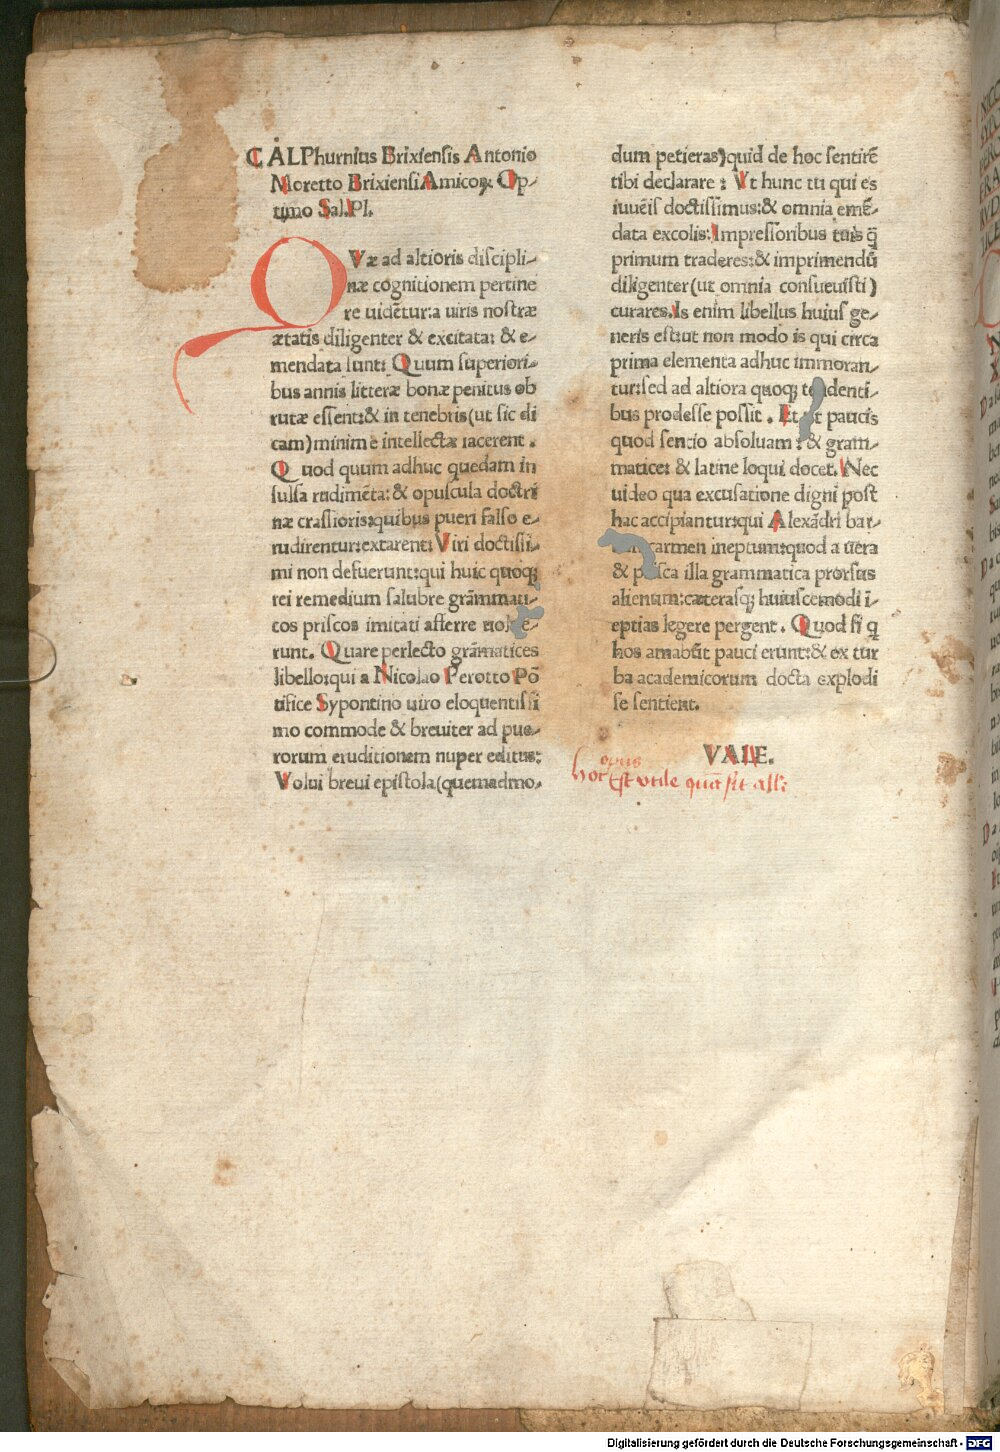 CALPhurnius Brixiensis Antonio
Moretto Brixiensi Amicoꝝ Op-
timo Sal. Pl.
QVæ ad altioris discipli-
næ cognitionem pertine
re uidẽtur: a uiris nostræ
ætatis diligenter & excitata: & e-
mendata sunt: Quum superiori-
bus annis litteræ bonæ penitus ob
rutæ essent: & in tenebris (ut sic di
cam) minime intellectæ iacerent.
Quod quum adhuc quedam in
sulsa rudimẽta: & opuscula doctri
næ crassioris: quibus pueri falso e-
rudirentur: extarent: Viri doctissi-
mi non defuerunt: qui huic quoqꝫ
rei remedium salubre grãmmati-
cos priscos imitati afferre uol e-
runt. Quare perlecto grãmatices
libello: qui a Nicolao Perotto Põ
tifice Sypontino uiro eloquentissi
mo commode & breuiter ad pue-
rorum eruditionem nuper editus:
Volui breui epistola (quemadmo-
dum petieras) quid de hoc sentirẽ
tibi declarare: Vt hunc tu qui es
iuuẽis doctissimus: & omnia emẽ-
data excolis: Impressoribus tuis q̃
primum traderes: & imprimendũ
diligenter (ut omnia consueuisti)
curares. Is enim libellus huius ge-
neris est: ut non modo is qui circa
prima elementa adhuc immoran-
tur: sed ad altiora quoqꝫ te denti-
bus prodesse possit. Et ut paucis
quod sentio absoluam: & gram-
matice: & latine loqui docet. Nec
uideo qua excusatione digni post
hac accipiantur: qui Alexãdri bar-
carmen ineptum: quod a uera
& p sca illa grammatica prorsus
alienum: cæterasqꝫ huiuscemodi ĩ-
eptias legere pergent. Quod si q
hos amabũt pauci erunt: & ex tur
ba academicorum docta explodi
se sentient.
VALE.
hoc opus Est vtile quã sit alli
Digitalisierung gefördert durch die Deutsche Forschungsgemeinschaft - DFG